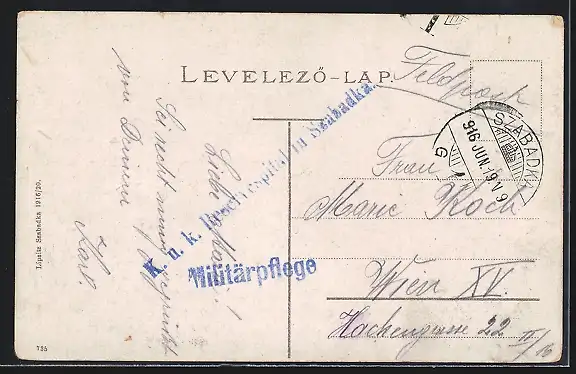 LEVELEZŐ-LAP.
Feldpost
SZABADKA
916 JUN. 19
G
K. u. k. Reservespital in Szabadka.
Militärpflege
Frau
Marie Koch
Wien XV.
Hackengasse 22 II/16
Liebe Mama!
Sei recht innig geküsst
von Deinem
Karl.
Lipsitz Szabadka 1916/20.
735